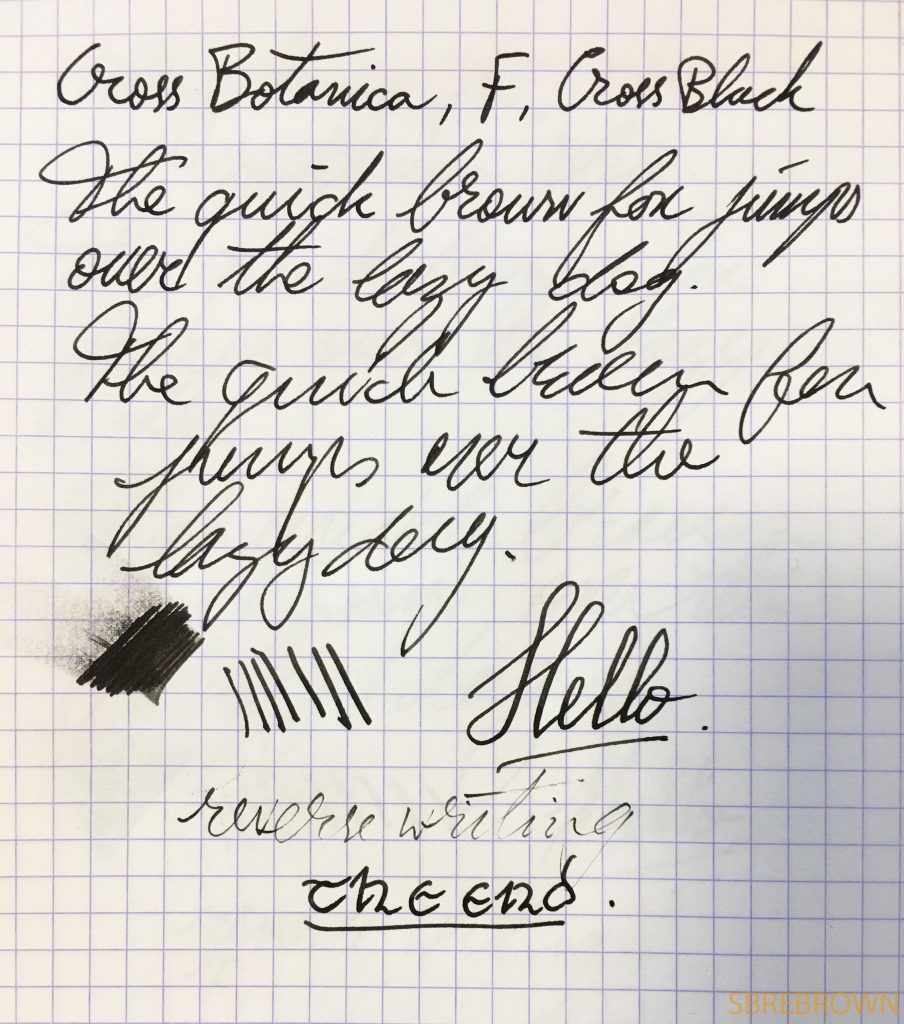 Cross Botanica, F, Cross Black
The quick brown fox jumps
over the lazy dog.
The quick brown fox
jumps over the
lazy dog.
Hello.
reverse writing
the end.
SBREBROWN